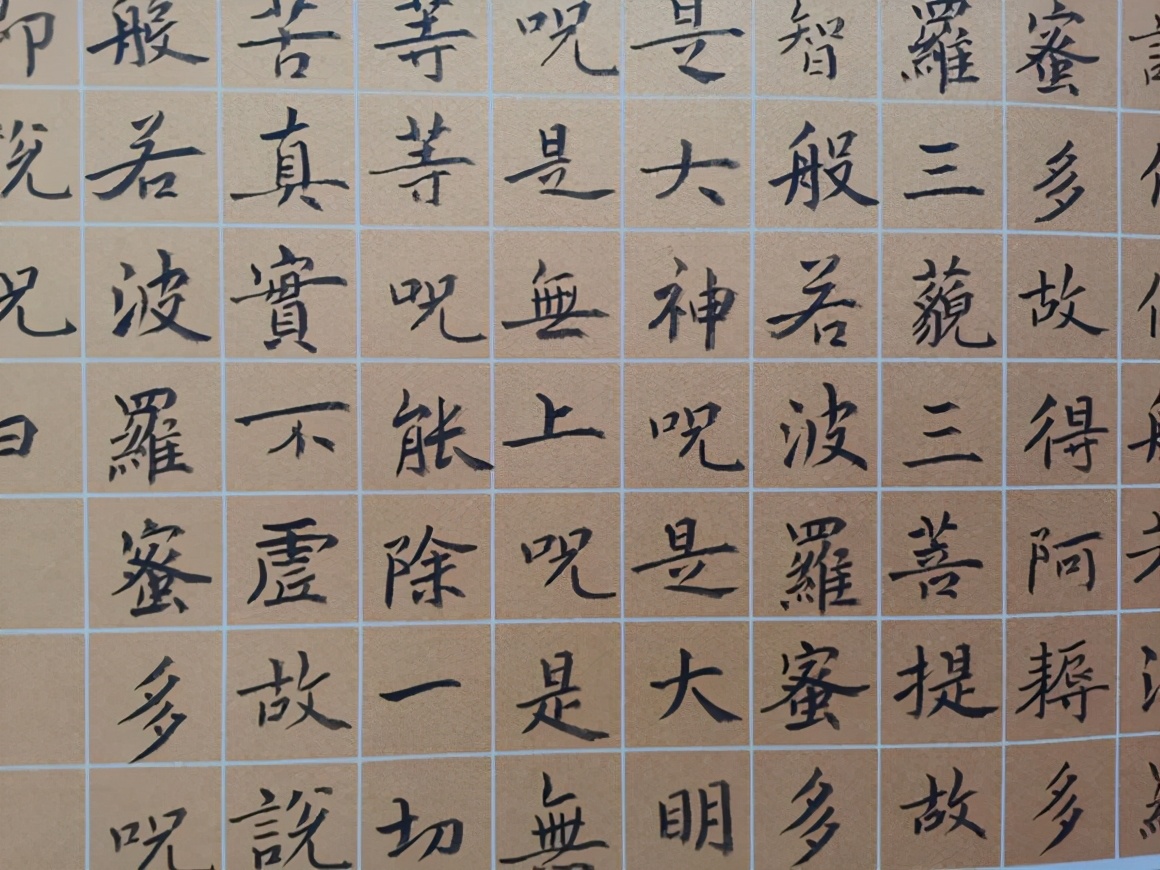 蜜多故得阿耨多
羅三藐三菩提故
智般若波羅蜜多
是大神呪是大明
呪是無上呪是無
等等呪能除一切
苦真實不虛故說
般若波羅蜜多呪
即說呪曰